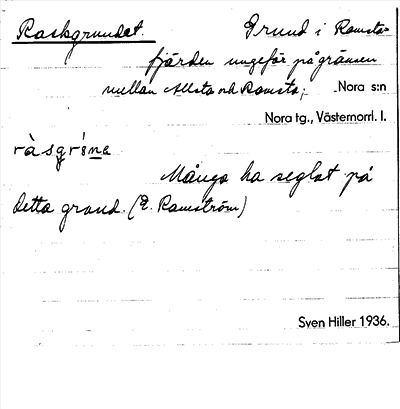 Raskgrundet. Grund i Ramsta-
fjärden ungefär på gränsen
mellan Allsta och Ramsta; Nora s:n
Nora tg., Västernorrl. l.
Många ha seglat på
detta grund. (E. Ramström)
Sven Hiller 1936.